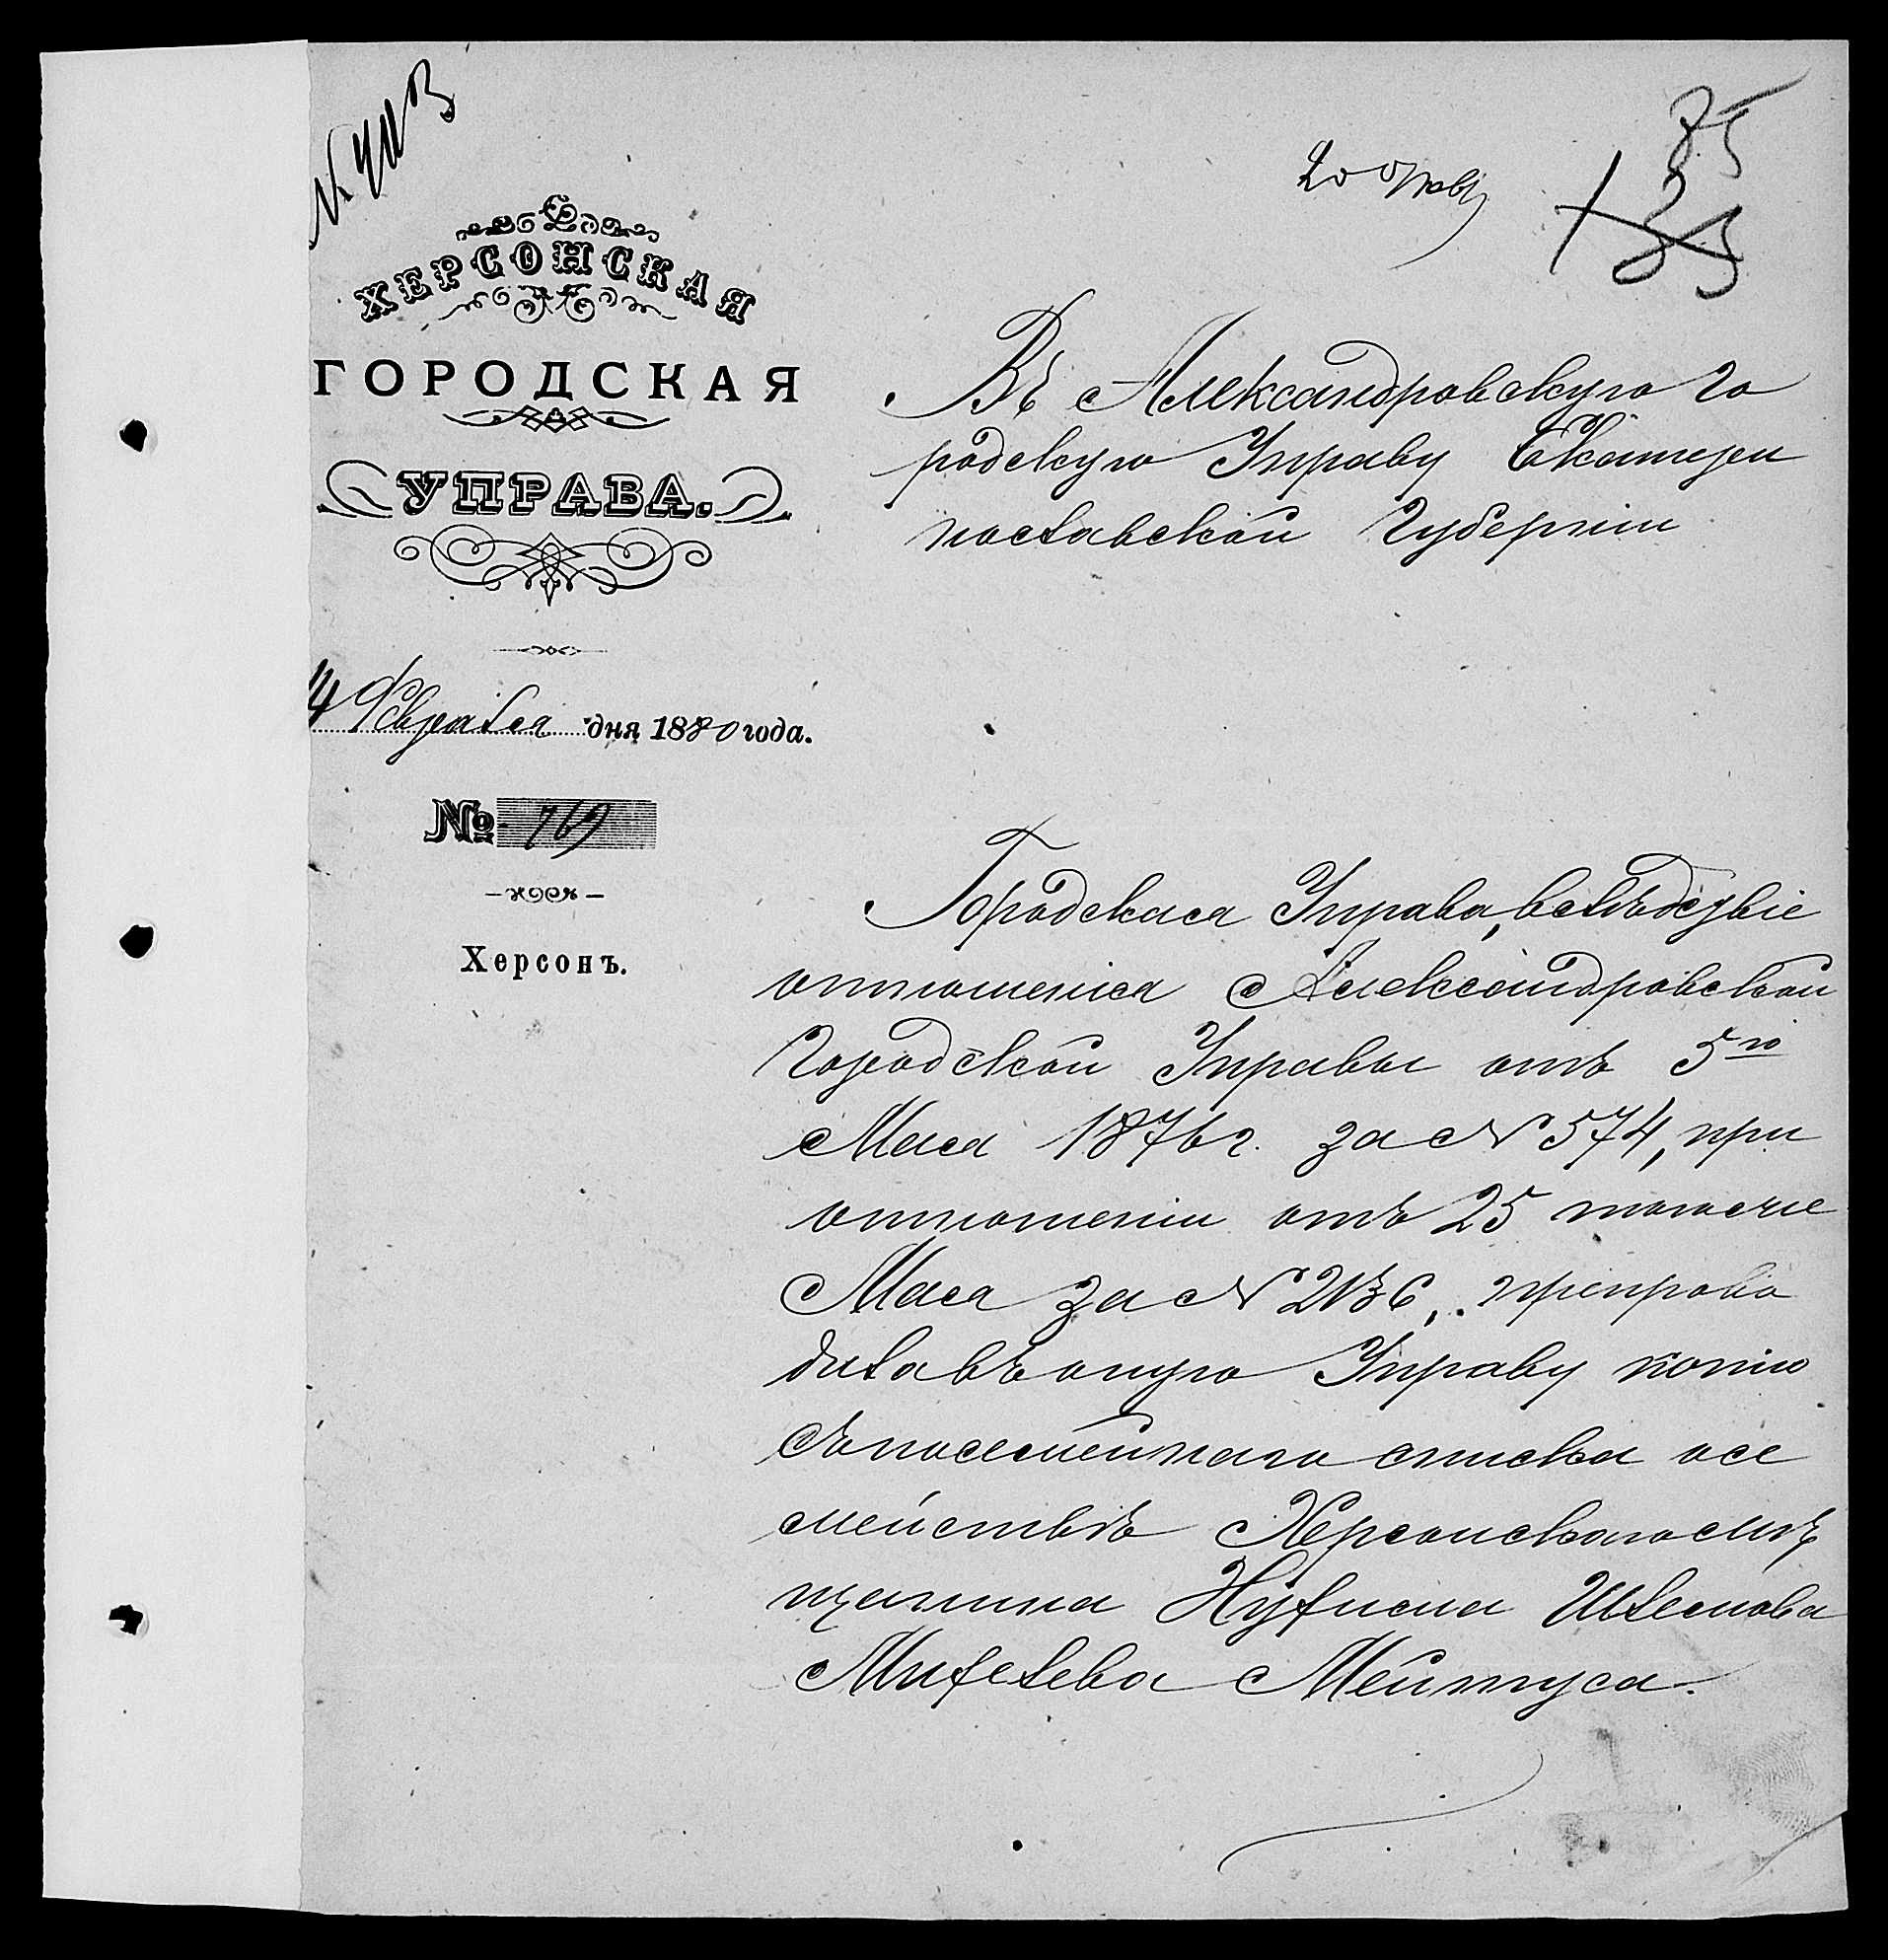 85
ХЕРСОНСКАЯ
ГОРОДСКАЯ
УПРАВА.
Февраля дня 1880 года.
№ 769
Херсонъ.
Въ Александровскую Го
родскую Управу Екатери
нославской Губерніи
Городская Управа, вслѣдствіе
отношенія Александровской
Городской Управы отъ 5го
Мая 1876 г. за № 574, при
отношеніи отъ 25 того же
Мая за № 2136, препрово
дила въ оную Управу копію
съ посемейнаго списка о се
мействѣ Херсонскаго мѣ
щанина Нухима Шлемова
Мителева Мейтуса.